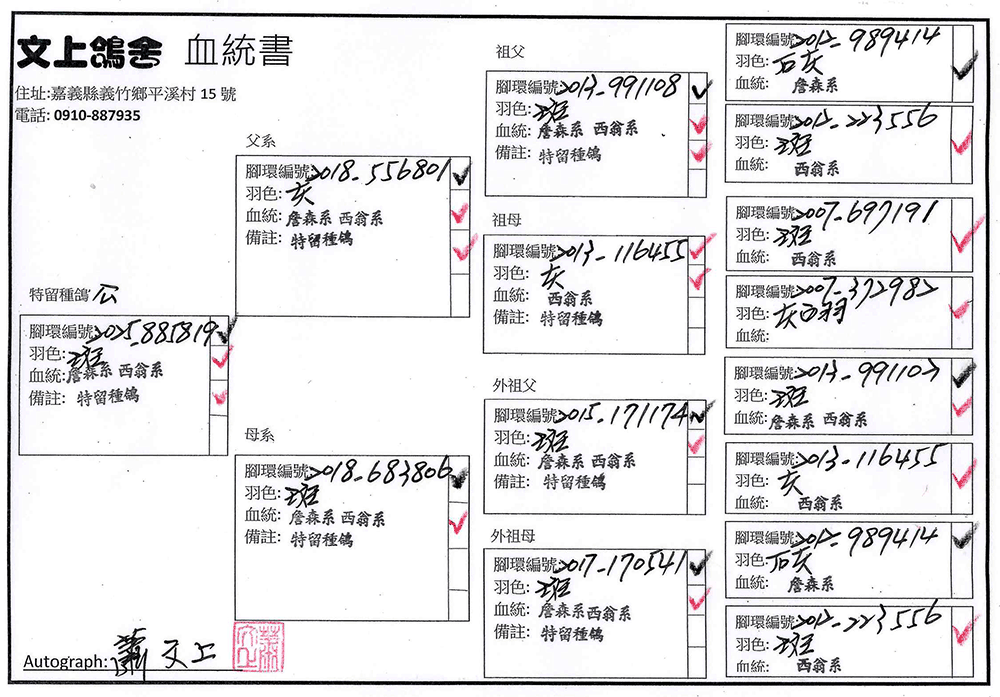 文上鴿舍 血統書
住址:嘉義縣義竹鄉平溪村 15 號
電話: 0910-887935
特留種鴿 公
腳環編號:2025-885819
羽色: 斑
血統: 詹森系 西翁系
備註: 特留種鴿
父系
腳環編號:2018-556801
羽色: 灰
血統: 詹森系 西翁系
備註: 特留種鴿
母系
腳環編號:2018-683806
羽色: 斑
血統: 詹森系 西翁系
備註: 特留種鴿
祖父
腳環編號:2013-991108
羽色: 斑
血統: 詹森系 西翁系
備註: 特留種鴿
祖母
腳環編號:2013-116455
羽色: 灰
血統: 西翁系
備註: 特留種鴿
外祖父
腳環編號:2015-171174
羽色: 斑
血統: 詹森系 西翁系
備註: 特留種鴿
外祖母
腳環編號:2017-170541
羽色: 斑
血統: 詹森系 西翁系
備註: 特留種鴿
腳環編號:2012-989414
羽色: 石灰
血統: 詹森系
腳環編號:2012-223556
羽色: 斑
血統: 西翁系
腳環編號:2007-697191
羽色: 斑
血統: 西翁系
腳環編號:2007-372982
羽色: 灰白羽
血統:
腳環編號:2013-991107
羽色: 斑
血統: 詹森系 西翁系
腳環編號:2013-116455
羽色: 灰
血統: 西翁系
腳環編號:2012-989414
羽色: 石灰
血統: 詹森系
腳環編號:2012-223556
羽色: 斑
血統: 西翁系
Autograph: 蕭文上